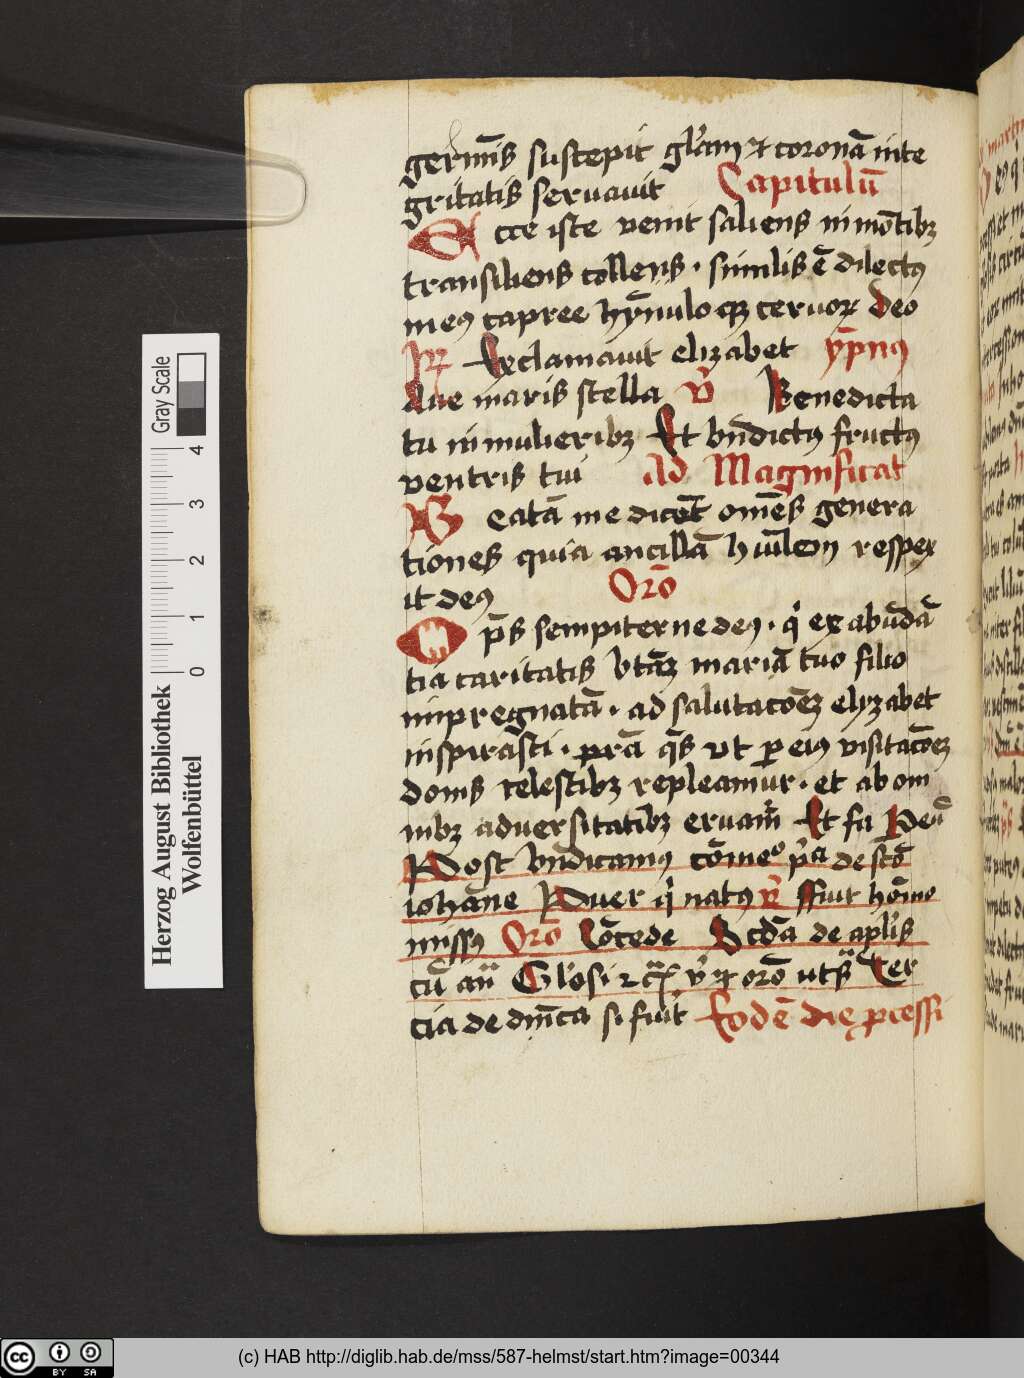 germīs suscepit glʼam ⁊ coronā inte
gritatis seruauit Capitulū
Ecce iste venit saliens in mōtibꝫ
transiliens colles · similis ē dilectꝯ
meꝯ capree hȳnulo qꝫ ceruoꝝ Deo
Exclamauit elizabet ȳpnꝯ
Aue maris stella v̄ Benedicta
tu in mulieribꝫ Et bn̄dictꝯ fructꝯ
ventris tui Ad Magnificat
Beatā me dicēt om̄es genera
tiones quia ancillā huīlem respex
it deꝯ Orō
Om̄ps sempiterne deꝯ · qʼ ex abūdā
tia caritatis vtāꝫ mariā tuo filio
impregnatā · ad salutacōeꝫ elyzabet
inspirasti · pr̄a qs̄ vt ꝑ eiꝯ visitacōeꝫ
donis celestibꝫ repleamur · et ab om
nibꝫ aduersitatibꝫ eruamʼ Et fit
Post bn̄dicamꝯ cōmeo pʼa de scō
iohāne Puer qʼ natꝯ v̄ ffuit hōmo
missꝯ Orō Cōcede Scdʼa de aplʼis
cū an̄ Glʼosi v̄ ⁊ orō ut sʼ Ter
cia de dn̄ica si fuit Eodē die ꝓcessi
Herzog August Bibliothek
Wolfenbüttel
Gray Scale
4
3
2
1
0
cc BY SA
(c) HAB http://diglib.hab.de/mss/587-helmst/start.htm?image=00344